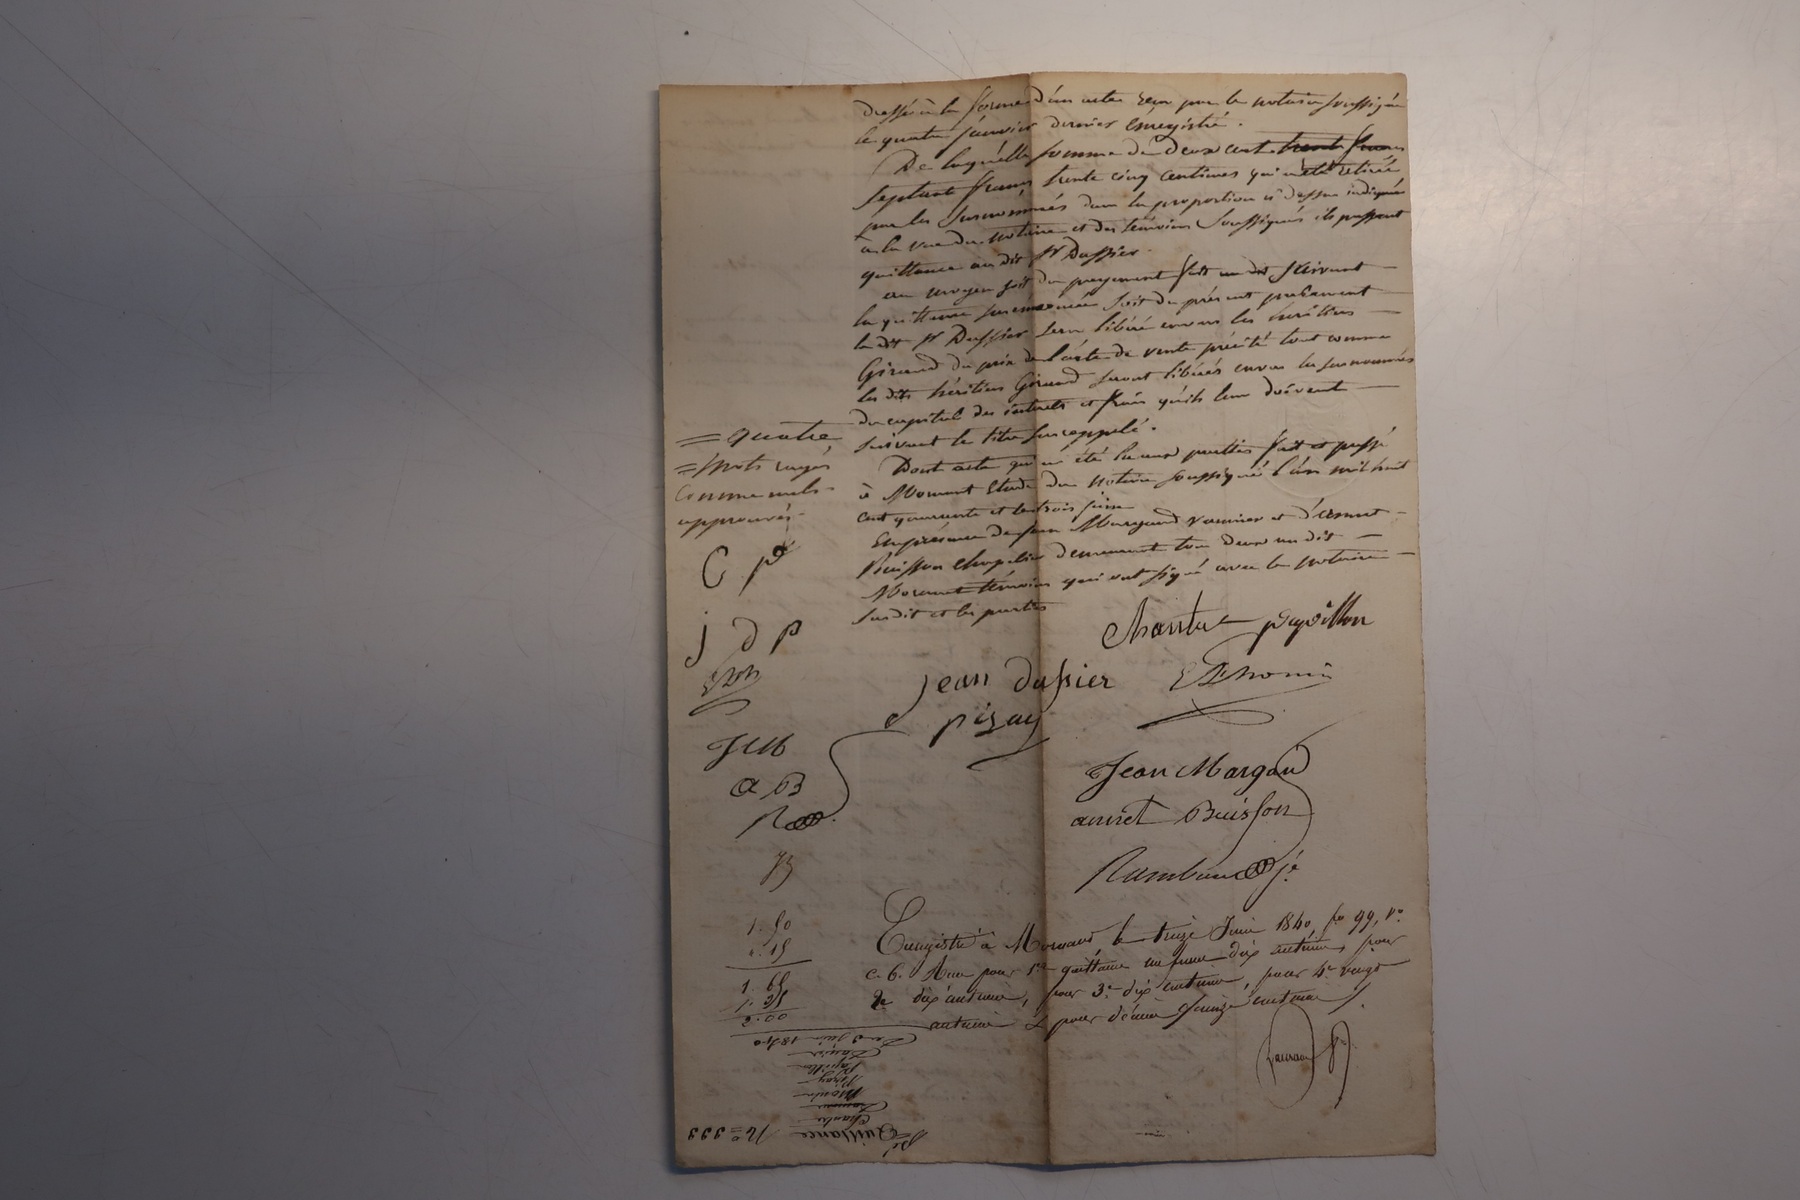 dressé à la forme d'un acte reçu par le notaire soussigné
le quatre janvier dernier enregistré.
De laquelle somme de deux cent trente francs
septante francs trente cinq centimes qui a été retirée
par les surnommés dans la proportion ci dessus indiquée
à la vue du notaire et des témoins soussignés ils passent
quittance au dit Sr Dussier.
au moyen soit du payement fait au dit suivant
la quittance soit du présent payement
le dit Sr Dussier sera libéré envers les héritiers
Giraud du prix de l'acte de vente précité tout comme
les dits héritiers Giraud seront libérés envers les surnommés
du capital des intérêts et frais qu'ils leur doivent
suivant le titre surrappelé.
Dont acte qui a été lu aux parties fait et passé
à Mornant Etude du notaire soussigné l'an mil huit
cent quarante et le trois juin
En présence de Jean Margand et d'annet
Buisson chapelier demeurant tous deux au dit
Mornant témoins qui ont signé avec le notaire
susdit et les parties
= quatre
= mots rayés
comme nuls
approuvés.
C P
J D P
JM
a B
Chantre papillon
Jean dussier
pizay
Jean Margand
annet Buisson
Enregistré à Mornant, le treize Juin 1840, fo 99, Vo
c. 6. Reçu pour 1re quittance un franc dix centimes, pour
2e dix centimes, pour 3e dix centimes, pour 4e vingt
centimes & pour décime quinze centimes
1. 50
". 15
1. 65
". 35
2. 00
Du 3 Juin 1840
Papillon
Pizay
Chantre
Quittance
No = 333